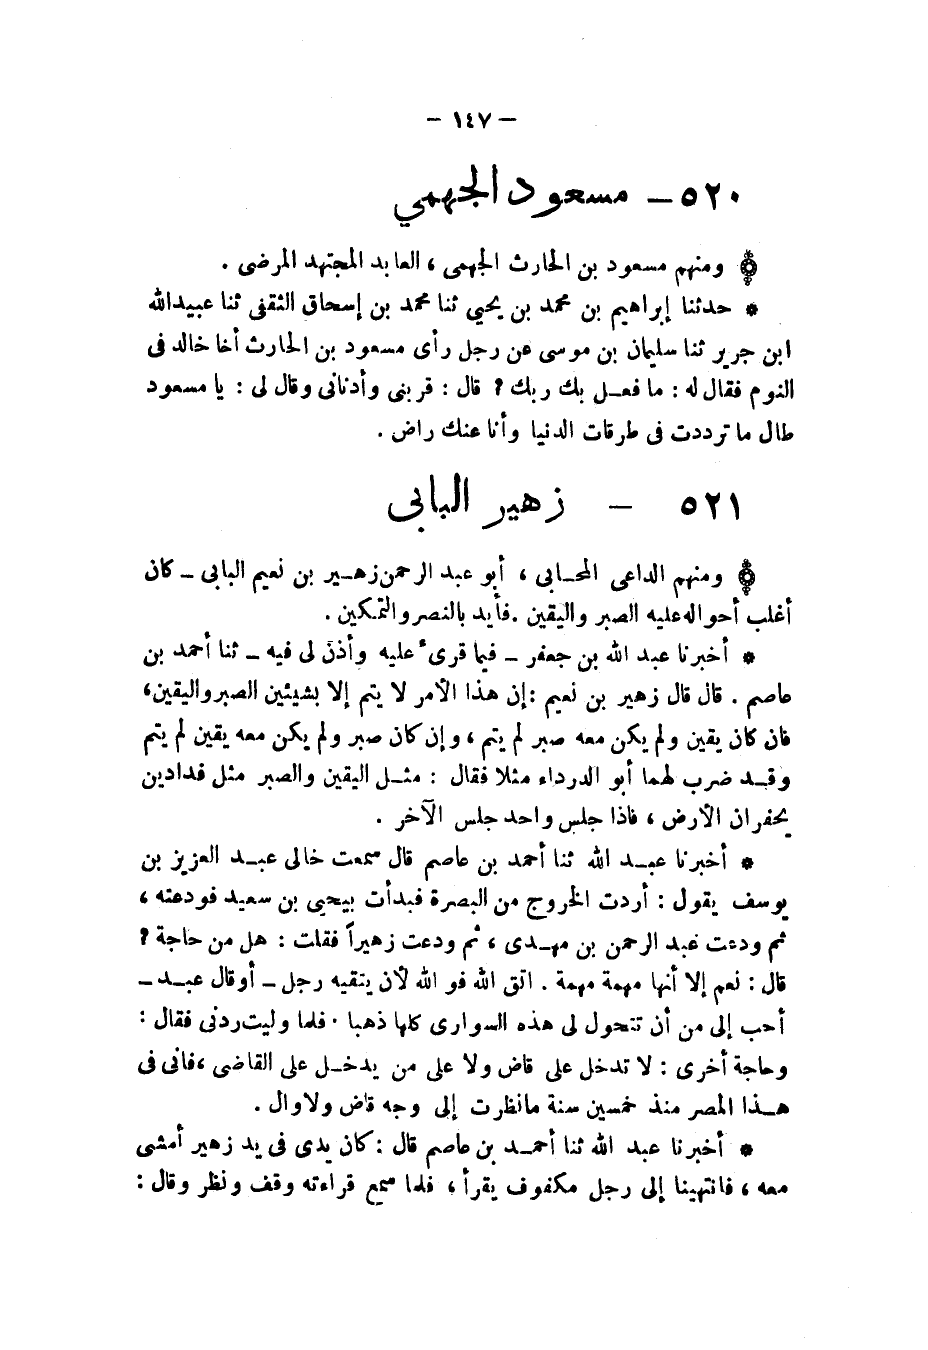 — ١٤٧ —
٥٢٠ — مسعود الجهمي
ومنهم مسعود بن الحارث الجهمى ، العابد المجتهد المرضى .
* حدثنا إبراهيم بن محمد بن يحيي ثنا محمد بن إسحاق الثقفى ثنا عبيدالله
ابن جرير ثنا سليمان بن موسى عن رجل رأى مسعود بن الحارث أخا خالد فى
النوم فقال له : ما فعـل بك ربك ؟ قال : قربنى وأدنانى وقال لى : يا مسعود
طال ما ترددت فى طرقات الدنيا وأنا عنك راض .
٥٢١ — زهير البابى
ومنهم الداعى المحـابى ، أبو عبد الرحمن زهـير بن نعيم البابى — كان
أغلب أحواله عليه الصبر واليقين . فأيد بالنصر والتمكين .
* أخبرنا عبد الله بن جعفر — فيما قرىء عليه وأذن لى فيه — ثنا أحمد بن
عاصم . قال قال زهير بن نعيم : إن هذا الأمر لا يتم إلا بشيئين الصبر واليقين ،
فان كان يقين ولم يكن معه صبر لم يتم ، وإن كان صبر ولم يكن معه يقين لم يتم
وقـد ضرب لهما أبو الدرداء مثلا فقال : مثـل اليقين والصبر مثل فدادين
يحفران الأرض ، فاذا جلس واحد جلس الآخر .
* أخبرنا عبـد الله ثنا أحمد بن عاصم قال سمعت خالى عبـد العزيز بن
يوسف يقول : أردت الخروج من البصرة فبدأت بيحيى بن سعيد فودعته ،
ثم ودعت عبد الرحمن بن مهـدى ، ثم ودعت زهيراً فقلت : هل من حاجة ؟
قال : نعم إلا أنها مهمة مهمة . اتق الله فو الله لأن يتقيه رجل — أوقال عبـد —
أحب إلى من أن تتحول لى هذه السوارى كلها ذهبا . فلما وليت ردنى فقال :
وحاجة أخرى : لا تدخل على قاض ولا على من يدخـل على القاضى ، فانى فى
هـذا المصر منذ خمسين سنة مانظرت إلى وجه قاض ولاوال .
* أخبرنا عبد الله ثنا أحمـد بن عاصم قال : كان يدى فى يد زهير أمشى
معه ، فانتهينا إلى رجل مكفوف يقرأ ، فلما سمع قراءته وقف ونظر وقال :